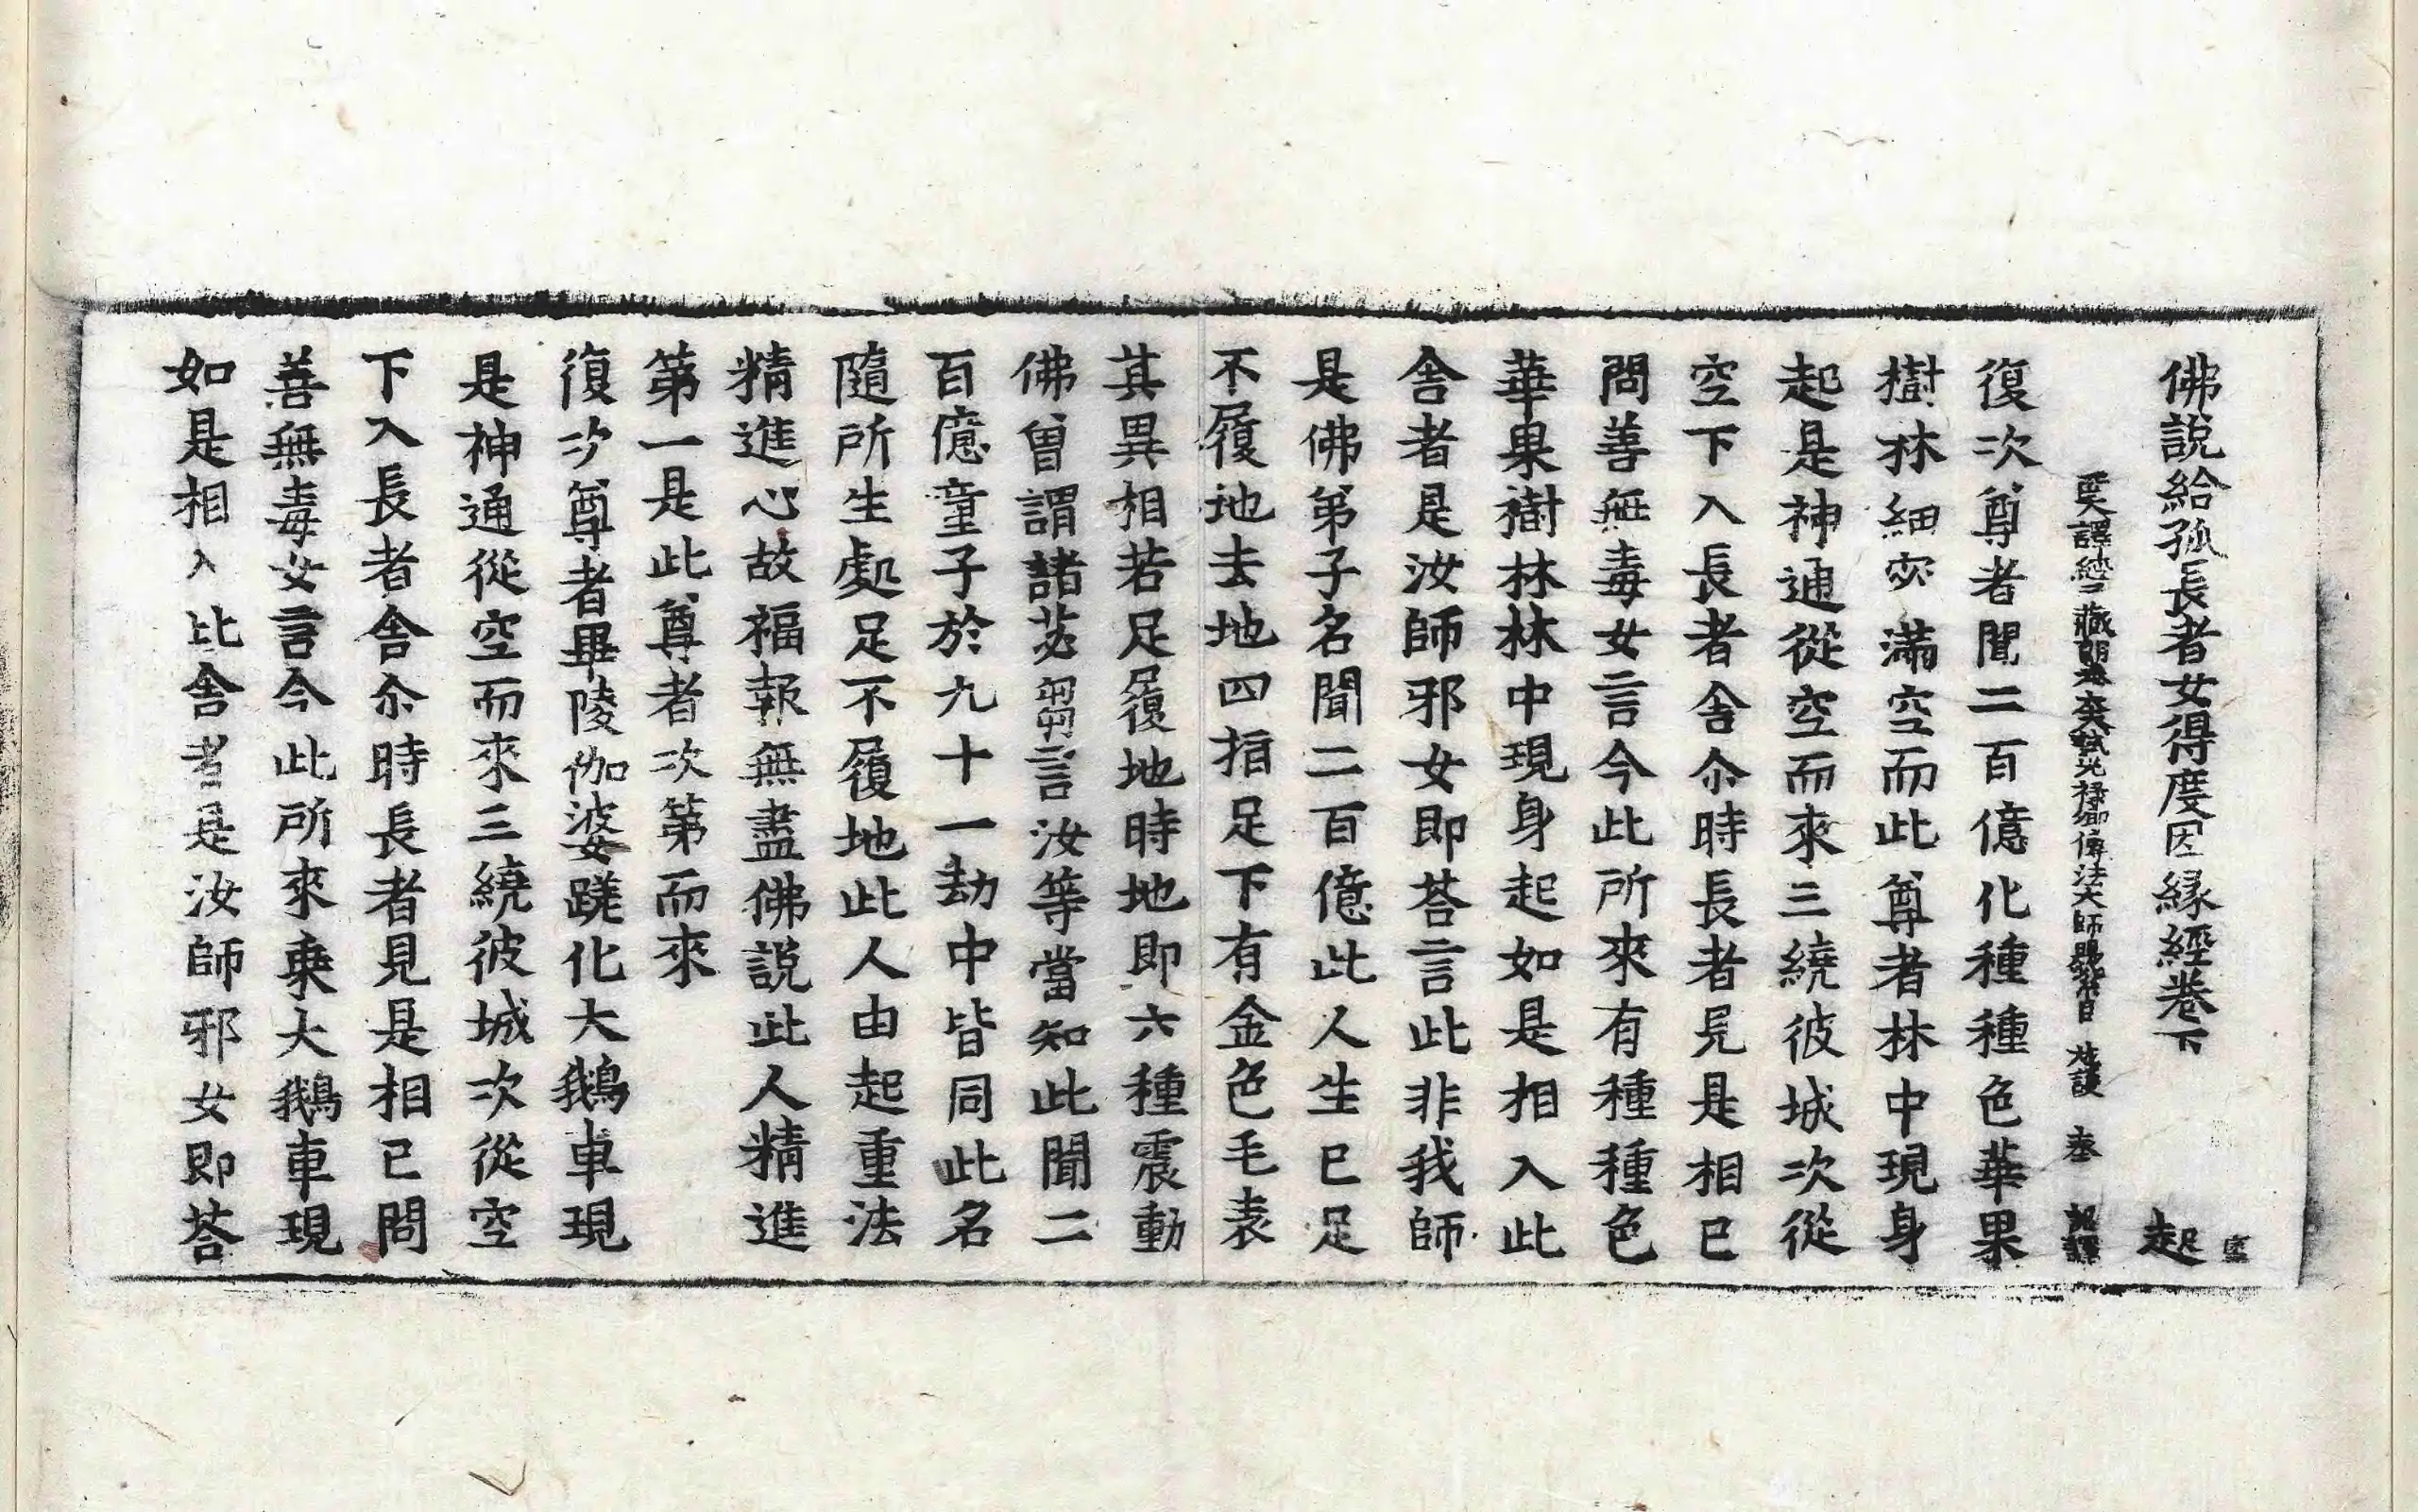 佛說給孤長者女得度因緣經卷下 起
西天譯經三藏朝奉大夫試光祿卿傳法大師賜紫臣 施護 奉 詔譯
復次尊者聞二百億化種種色華果
樹林細密滿空而此尊者林中現身
起是神通從空而來三繞彼城次從
空下入長者舍尒時長者見是相已
問善無毒女言今此所來有種種色
華果樹林林中現身起如是相入此
舍者是汝師邪女即荅言此非我師
是佛弟子名聞二百億此人生已足
不履地去地四指足下有金色毛表
其異相若足履地時地即六種震動
佛曾謂諸苾芻言汝等當知此聞二
百億童子於九十一劫中皆同此名
隨所生處足不履地此人由起重法
精進心故福報無盡佛說此人精進
第一是此尊者次第而來
復次尊者畢陵伽婆蹉化大鵝車現
是神通從空而來三繞彼城次從空
下入長者舍尒時長者見是相已問
善無毒女言今此所來乘大鵝車現
如是相入此舍者是汝師邪女即荅